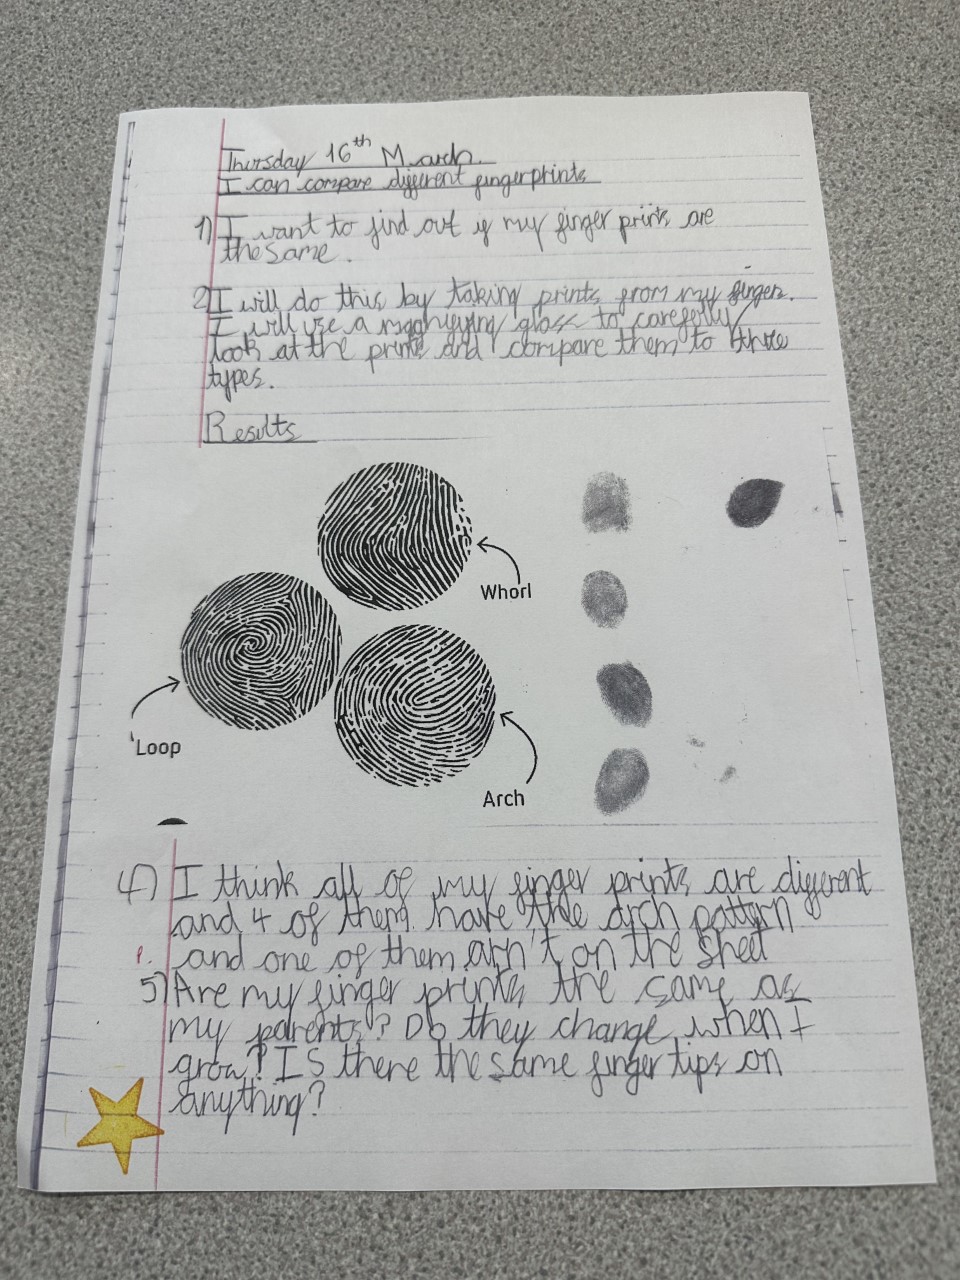 Thursday 16th March.
I can compare different fingerprints
1) I want to find out if my finger prints are
the same.
2) I will do this by taking prints from my fingers.
I will use a magnifying glass to carefully
look at the prints and compare them to three
types.
Results
Whorl
Loop
Arch
4) I think all of my finger prints are different
and 4 of them have the arch pattern
P. and one of them arn't on the sheet
5) Are my finger prints the same as
my parents? Do they change when I
grow? IS there the same finger tips on
anything?